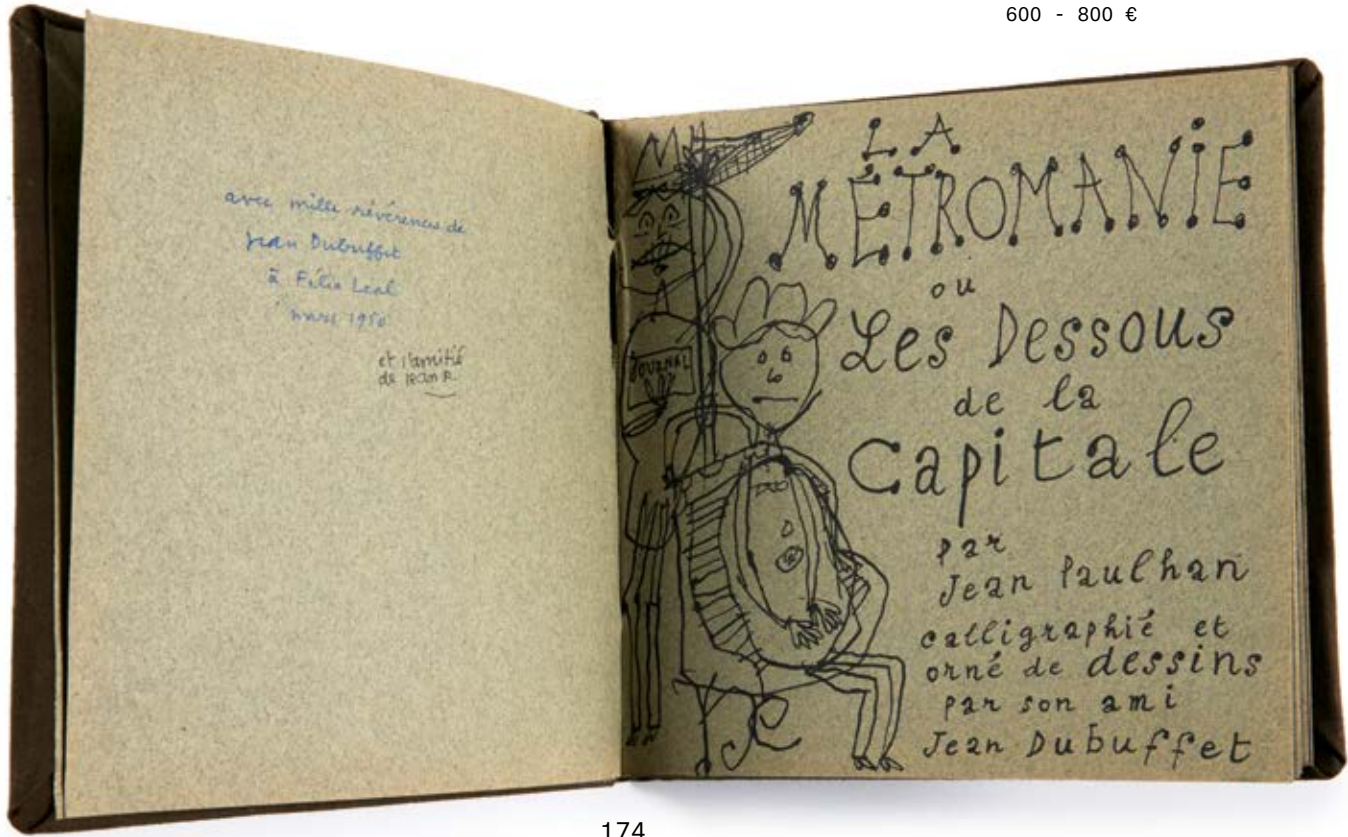 600 - 800 €
avec mille révérences de
Jean Dubuffet
à Félia Leal
mars 1950
et l'amitié
de Jean P.
LA
MÉTROMANIE
ou
Les Dessous
de la
Capitale
par
Jean Paulhan
calligraphié et
orné de dessins
par son ami
Jean Dubuffet
JOURNAL
174